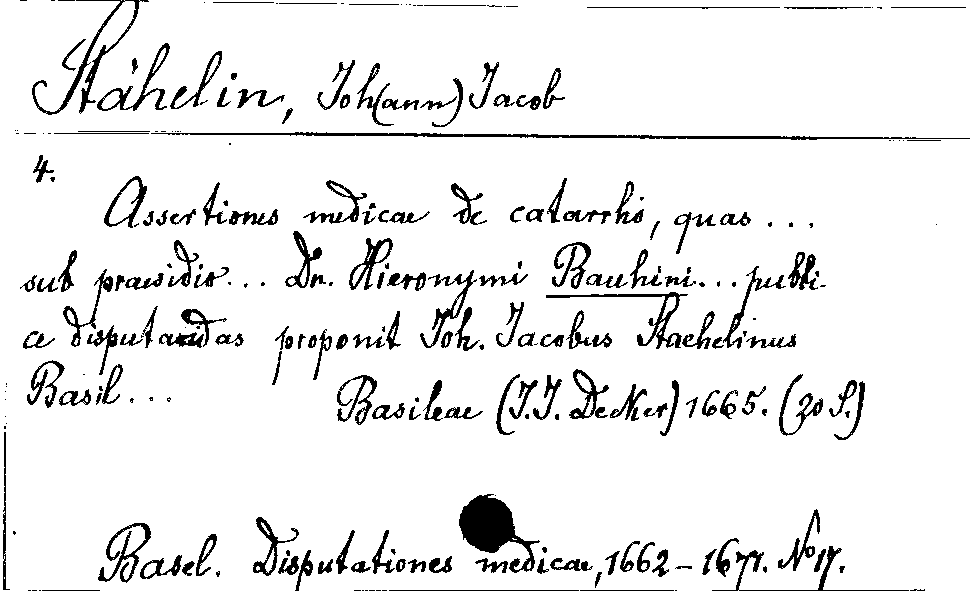 Stähelin, Joh(ann) Jacob
4.
Assertiones medicae de catarrho, quas ...
sub praesidio ... Dn. Hieronymi Bauhini ... publi-
ce disputandas proponit Joh. Jacobus Staehelinus
Basil ...
Basileae (J.J. Decker) 1665. (20 S.)
Basel. Disputationes medicae, 1662-1677. No 17.